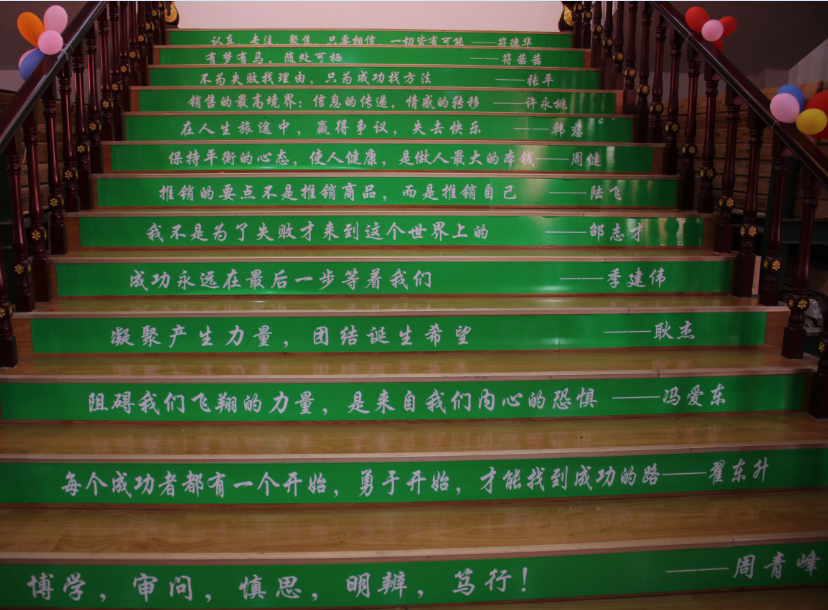 认真,专注,聚焦,只要相信,一切皆有可能 ——符德华
有梦有马,随处可栖 ——符茜茜
不为失败找理由,只为成功找方法 ——张平
销售的最高境界:信息的传递,情感的转移 ——许永桃
在人生旅途中,赢得争议,失去快乐 ——韩慈
保持平衡的心态,使人健康,是做人最大的本钱——周健
推销的要点不是推销商品,而是推销自己 ——陆飞
我不是为了失败才来到这个世界上的 ——邰志才
成功永远在最后一步等着我们 ——季建伟
凝聚产生力量,团结诞生希望 ——耿杰
阻碍我们飞翔的力量,是来自我们内心的恐惧 ——冯爱东
每个成功者都有一个开始,勇于开始,才能找到成功的路——翟东升
博学,审问,慎思,明辨,笃行! ——周青峰